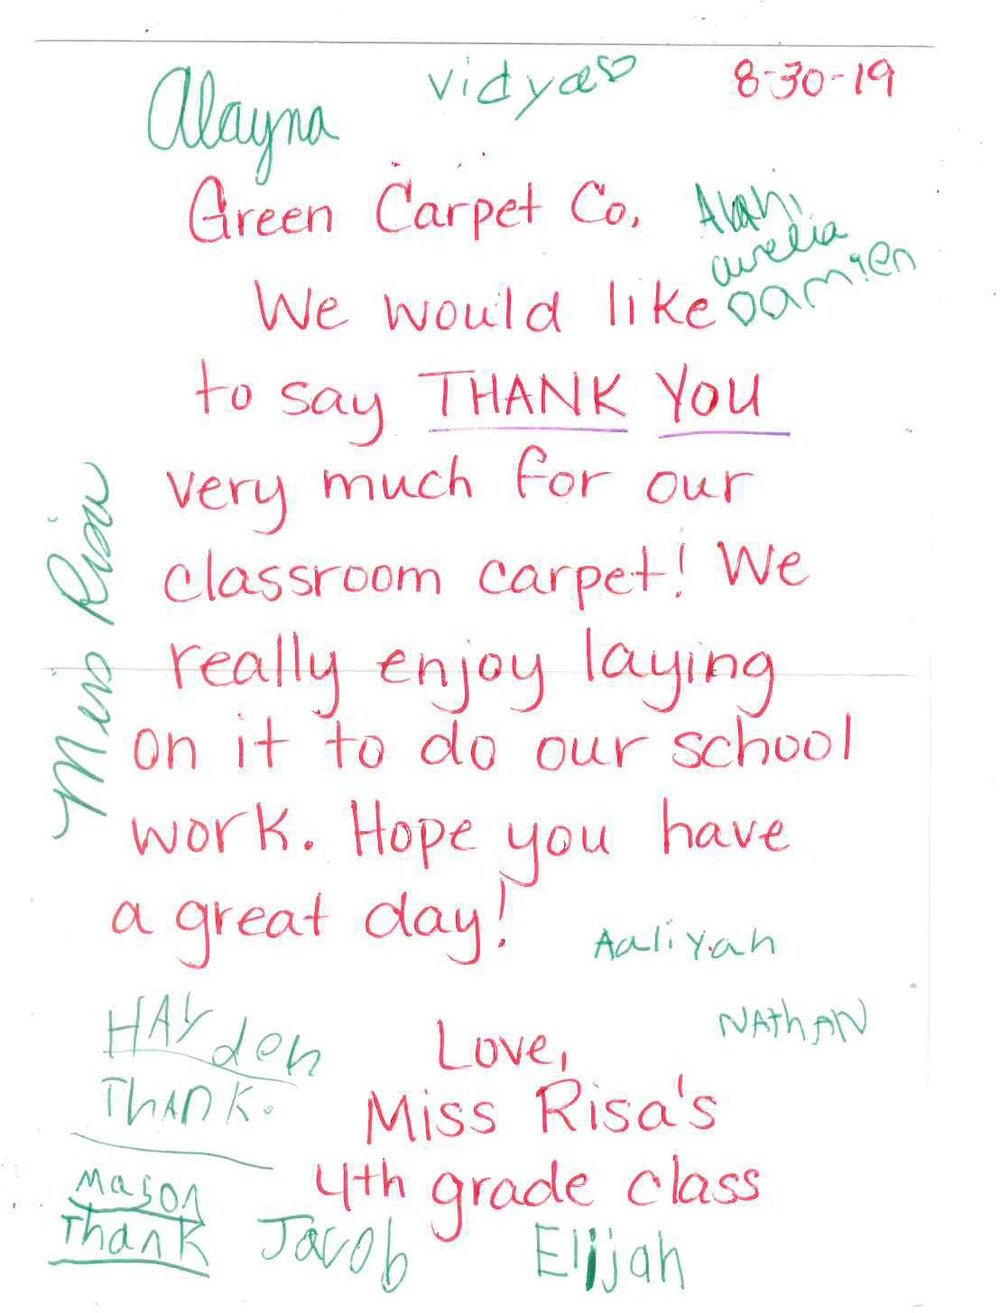 Alayna
Vidya
8-30-19
Green Carpet Co,
aurelia
Damien
We would like
to say THANK YOU
very much for our
classroom carpet! We
really enjoy laying
on it to do our school
work. Hope you have
a great day!
Miss Risa
Aaliyah
NAthAN
HAYden
THANK.
Love,
Miss Risa's
4th grade class
Mason
Thank
Jacob
Elijah